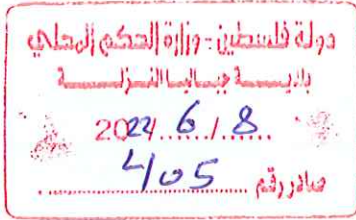 دولة فلسطين - وزارة الحكم المحلي
بلديـــــة جبـــاليـــا النـــزلـــــة
2022/6/8
صادر رقم 405